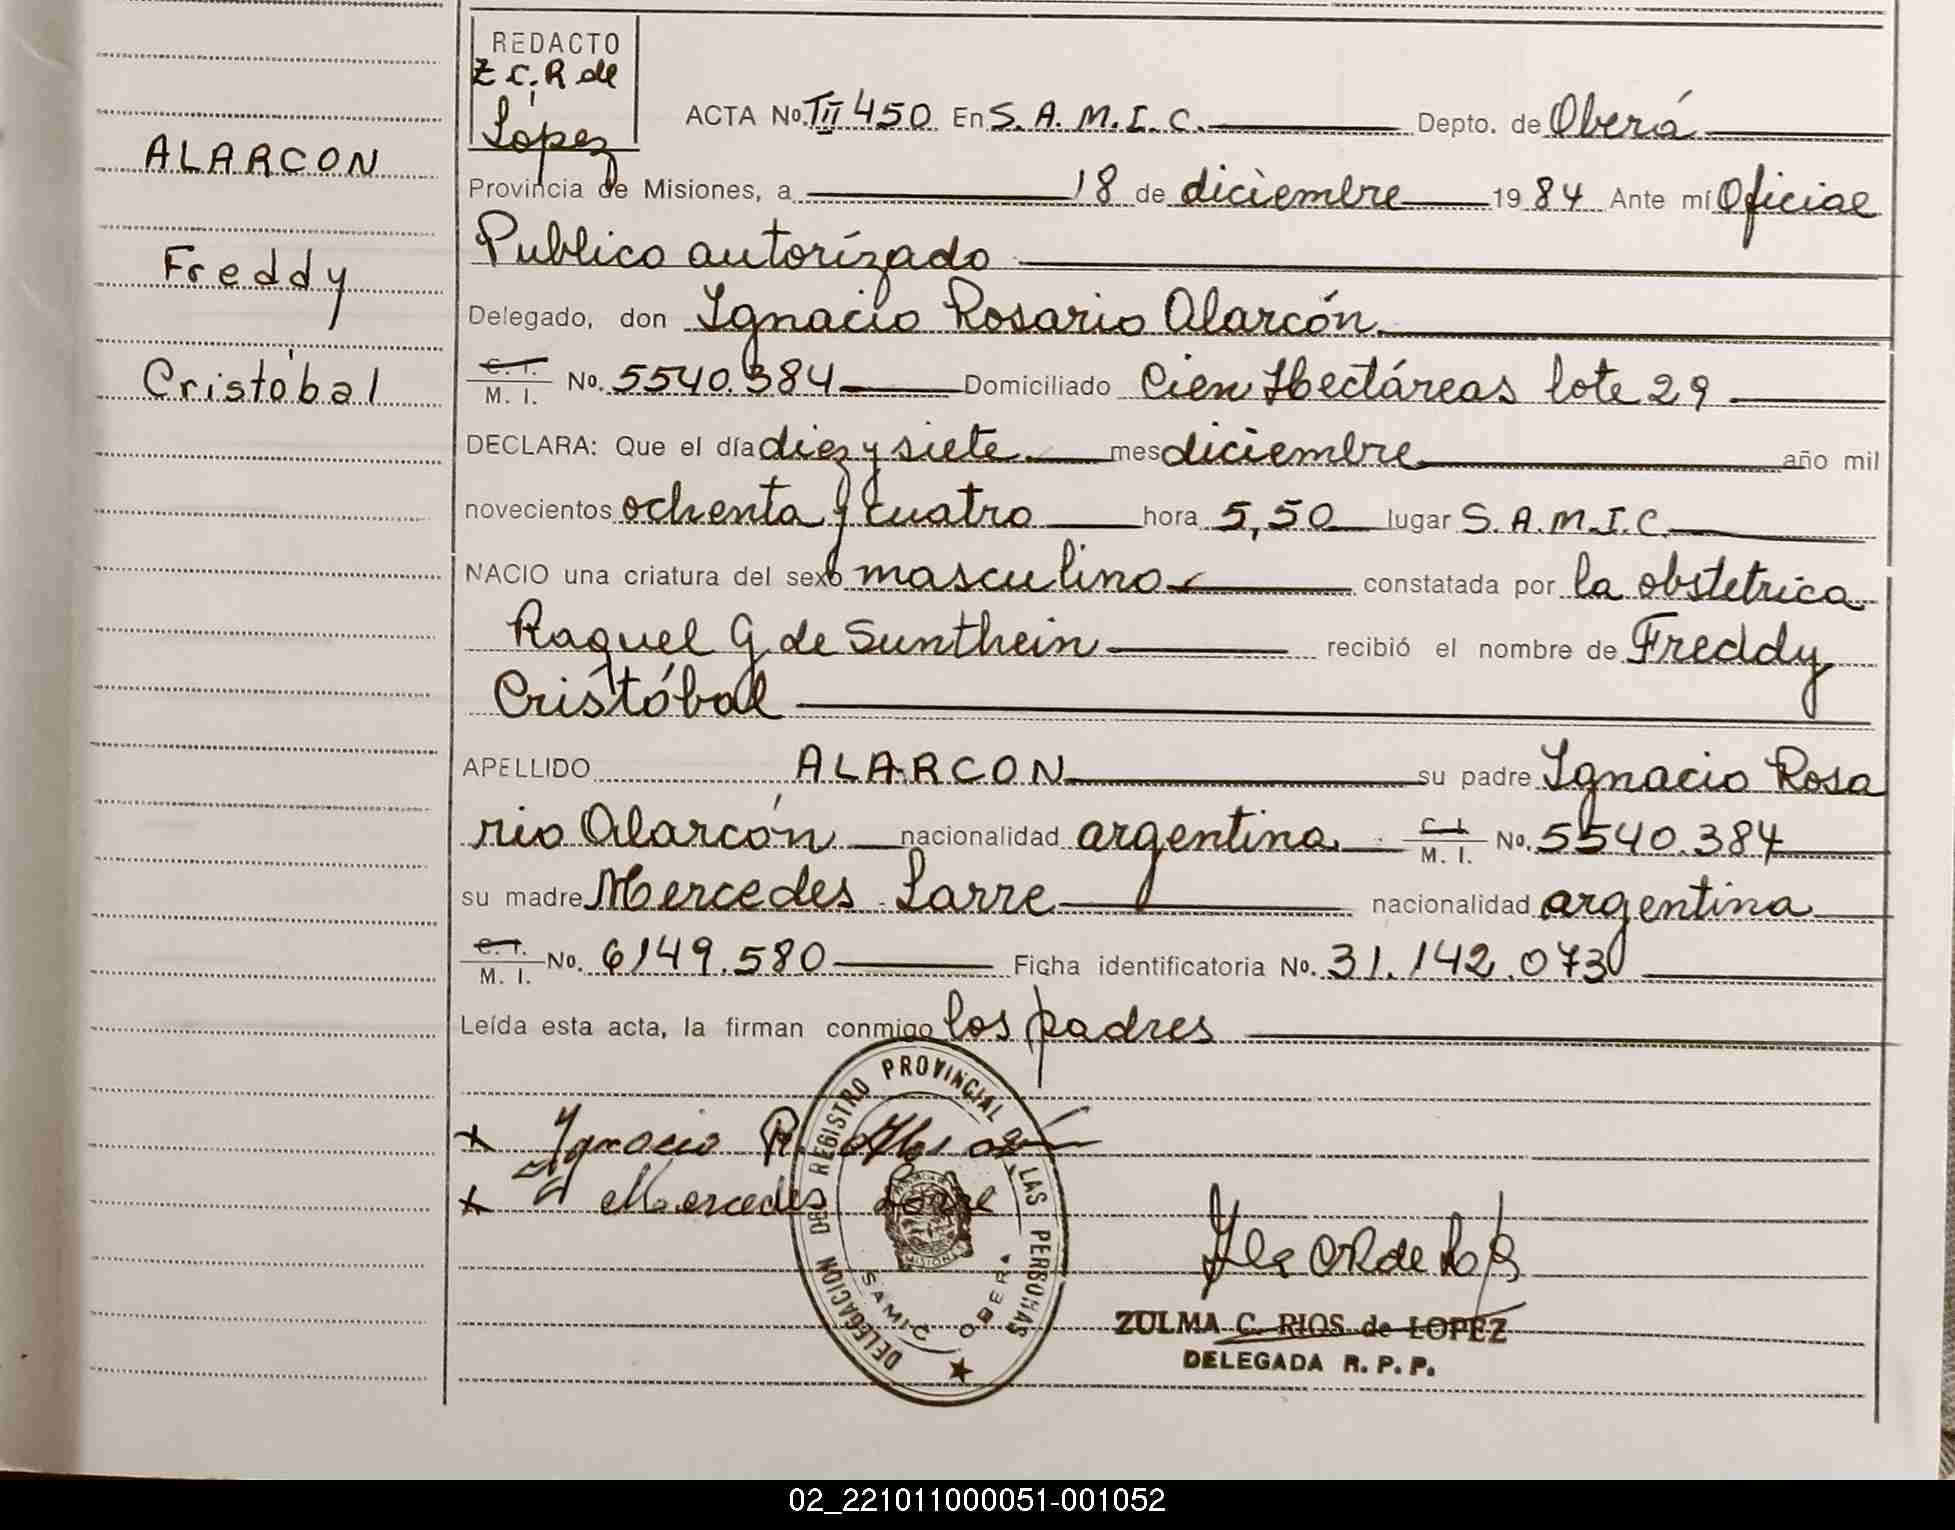 REDACTO
Z C. R de
López
ALARCON
Freddy
Cristóbal
ACTA No. TII 450 En S. A. M. I. C. Depto. de Oberá
Provincia de Misiones, a 18 de diciembre 1984 Ante mí Oficial
Publico autorizado
Delegado, don Ignacio Rosario Alarcón
C. I. M. I. No. 5540.384 Domiciliado Cien Hectáreas lote 29
DECLARA: Que el día diez y siete mes diciembre año mil
novecientos ochenta y cuatro hora 5,50 lugar S. A. M. I. C.
NACIO una criatura del sexo masculino constatada por la obstetrica
Raquel G. de Sunthein recibió el nombre de Freddy
Cristóbal
APELLIDO ALARCON su padre Ignacio Rosa
rio Alarcón nacionalidad argentina C. I. M. I. No. 5540.384
su madre Mercedes Larre nacionalidad argentina
C. I. M. I. No. 6149.580 Ficha identificatoria No. 31.142.073
Leída esta acta, la firman conmigo los padres
x Ignacio R. Alarcón
x Mercedes Larre
DELEGACION DEL REGISTRO PROVINCIAL DE LAS PERSONAS
MISIONES
SAMIC OBERA
ZULMA C. RIOS de LOPEZ
DELEGADA R. P. P.
02_221011000051-001052